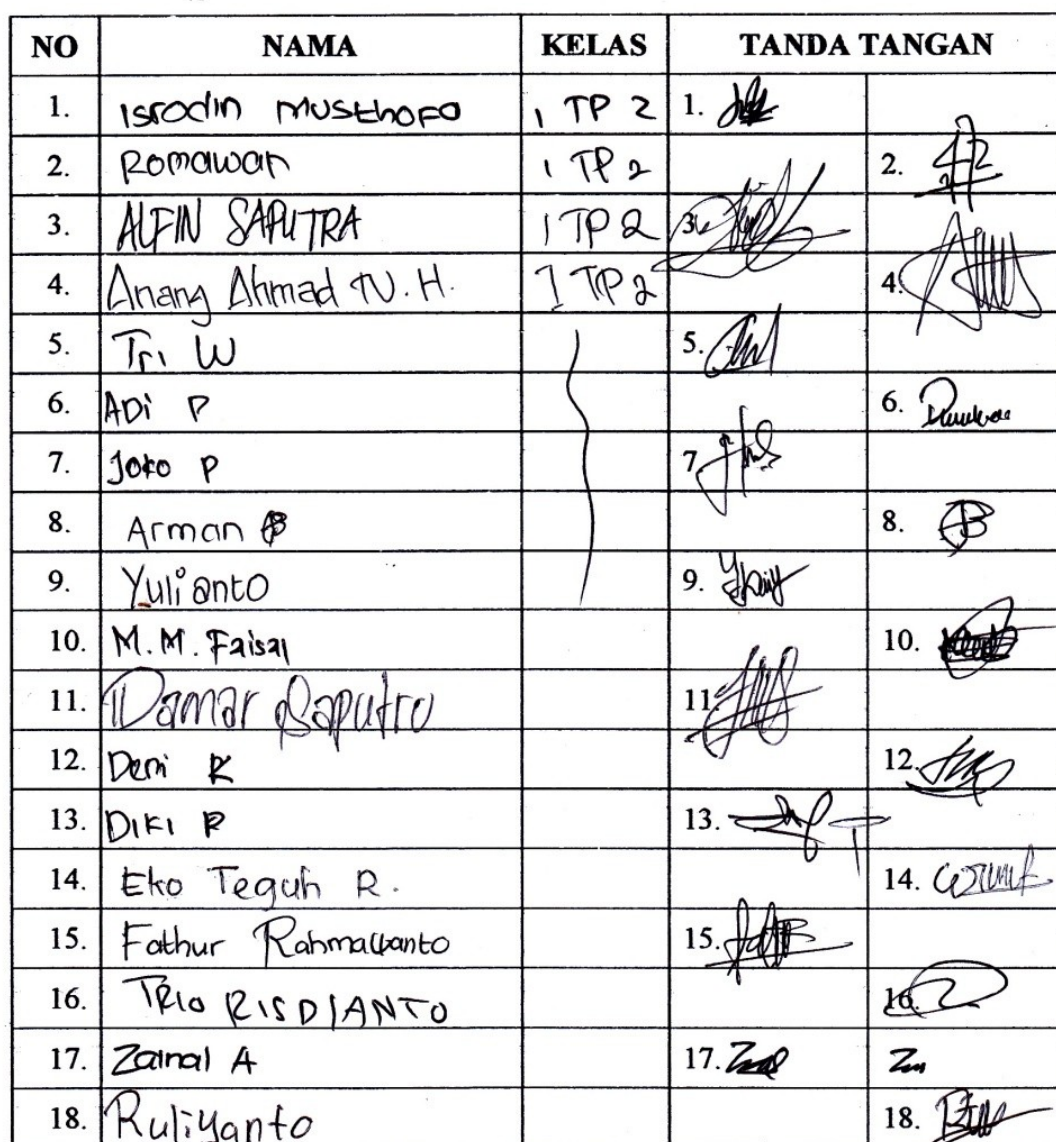 NO NAMA KELAS TANDA TANGAN
1. Isrodin Musthofa 1 TP 2 1.
2. Romawan 1 TP 2 2.
3. ALFIN SAPUTRA 1 TP 2 3.
4. Anang Ahmad N.H. 1 TP 2 4.
5. Tri W 5.
6. ADi P 6.
7. Joko P 7.
8. Arman B 8. B
9. Yulianto 9.
10. M.M. Faisal 10.
11. Damar Saputro 11.
12. Deni K 12.
13. DIKI P 13.
14. Eko Teguh R. 14.
15. Fathur Rahmawanto 15.
16. TRIO RISDIANTO 16.
17. Zainal A 17.
18. Ruliyanto 18.